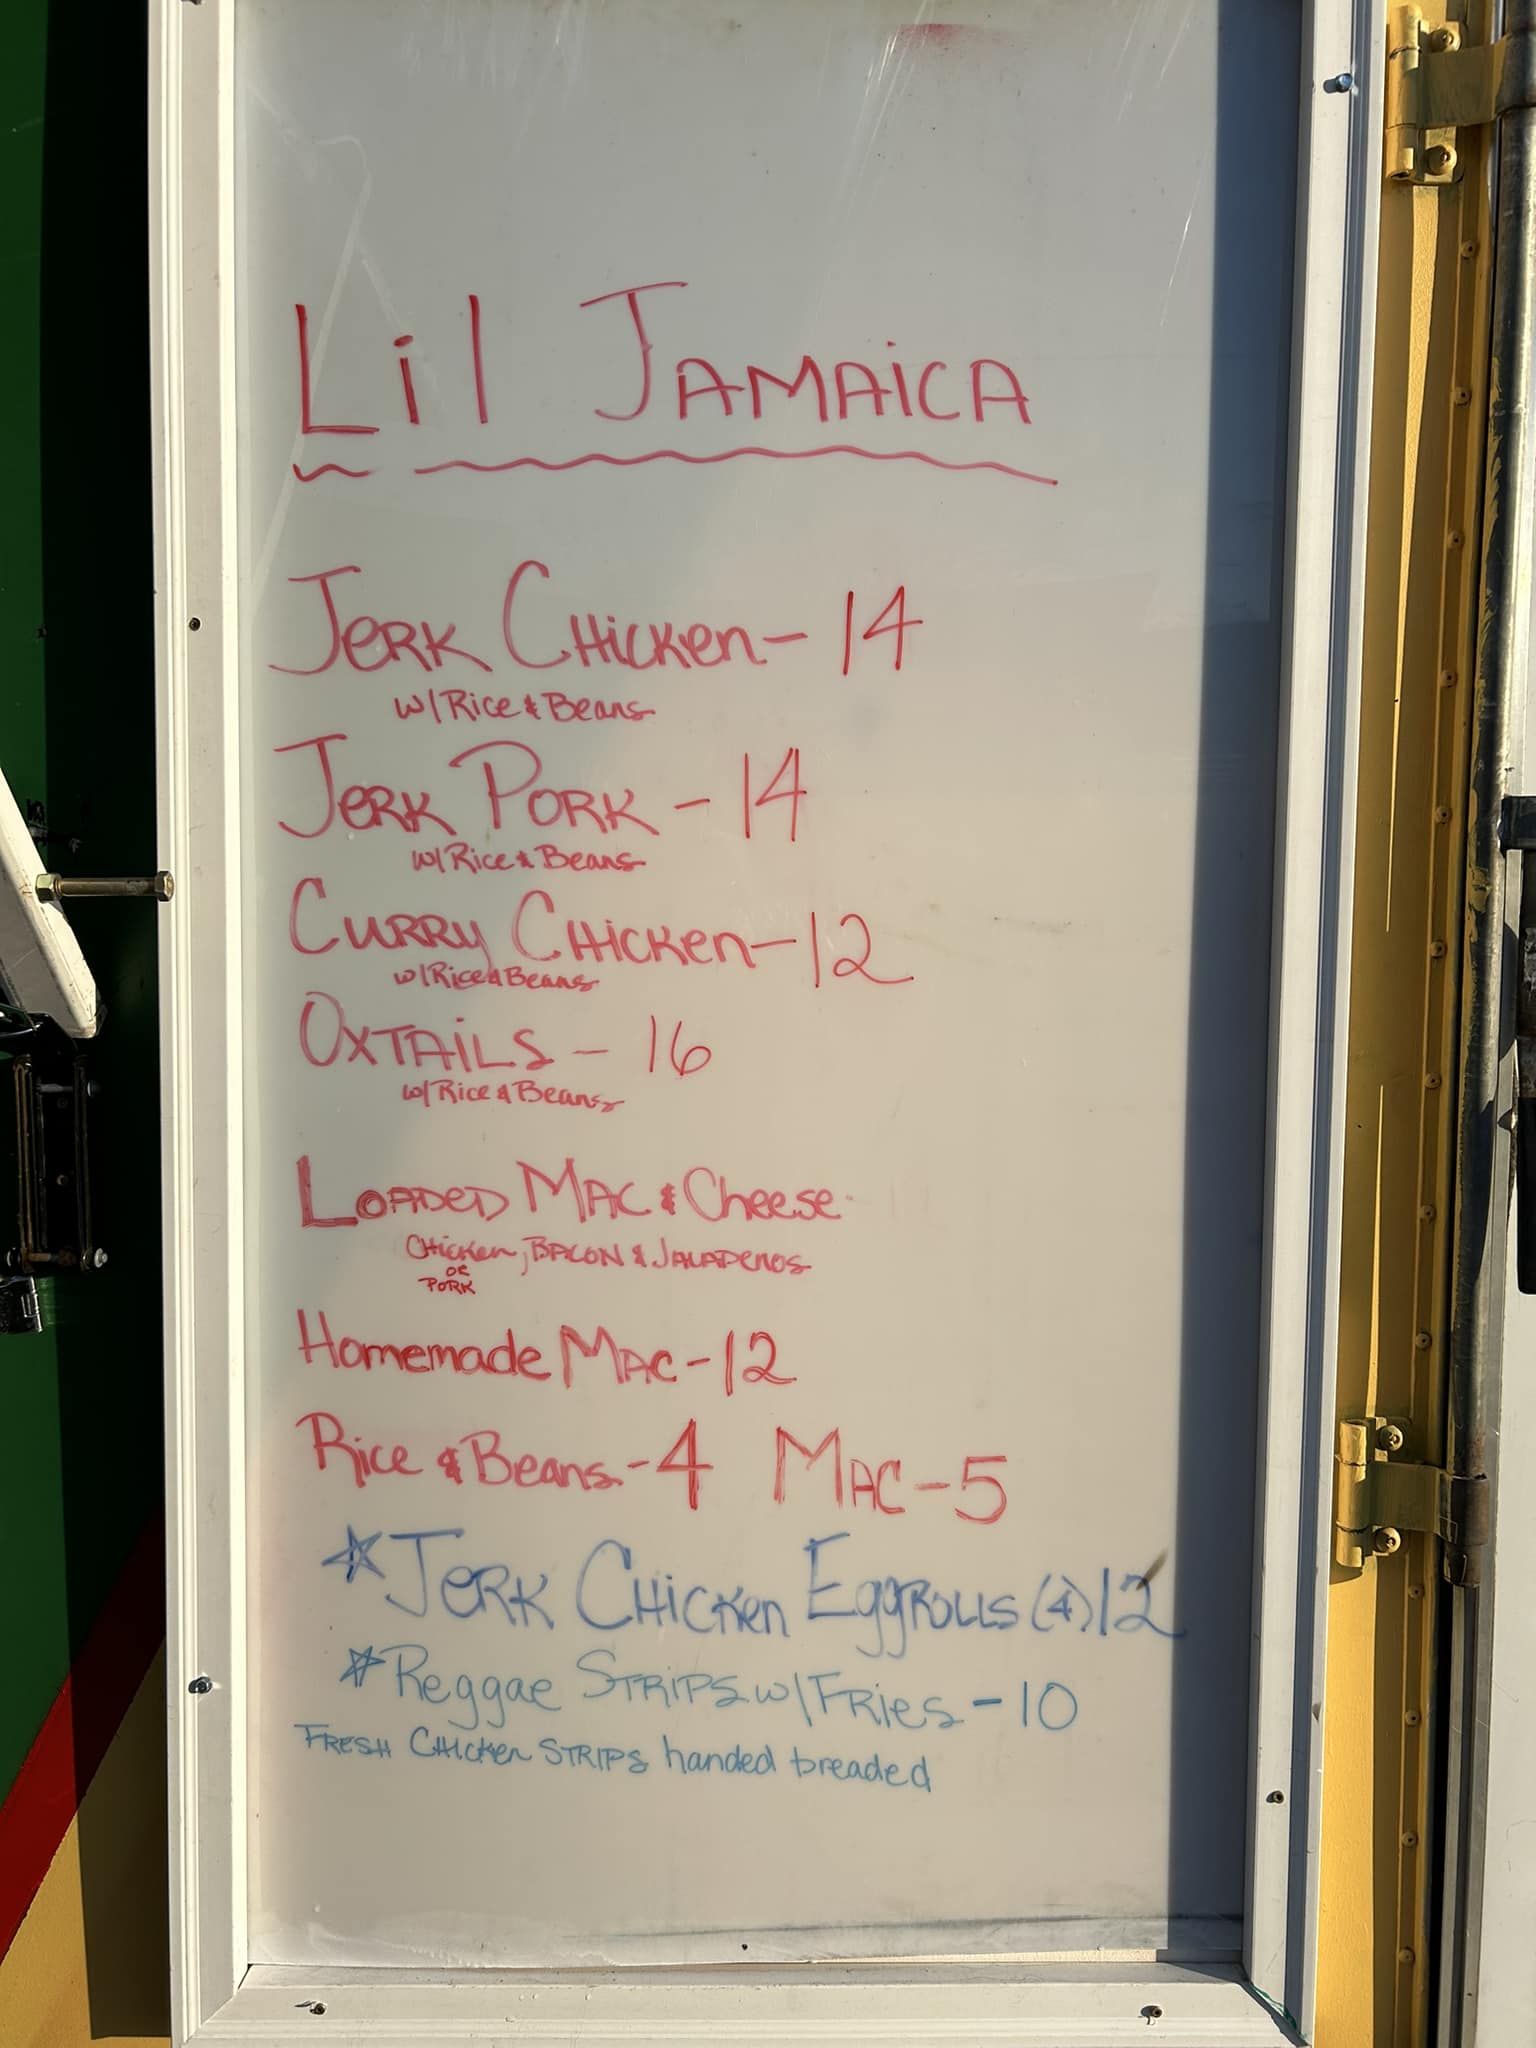 Lil JAMAiCA
JerK CHicKen - 14
w/Rice & Beans
JerK PORK - 14
w/Rice & Beans
CURRY CHicKen - 12
w/Rice & Beans
OXTAiLS - 16
w/Rice & Beans
LOADED MAC & Cheese
CHicKen, BACON & JALAPENOS
OR
PORK
Homemade MAC - 12
Rice & Beans - 4 MAC - 5
☆ JerK CHicKen EggROLLS (4) 12
☆ Reggae STRIPS w/ FRies - 10
FRESH CHicKen STRIPS handed breaded